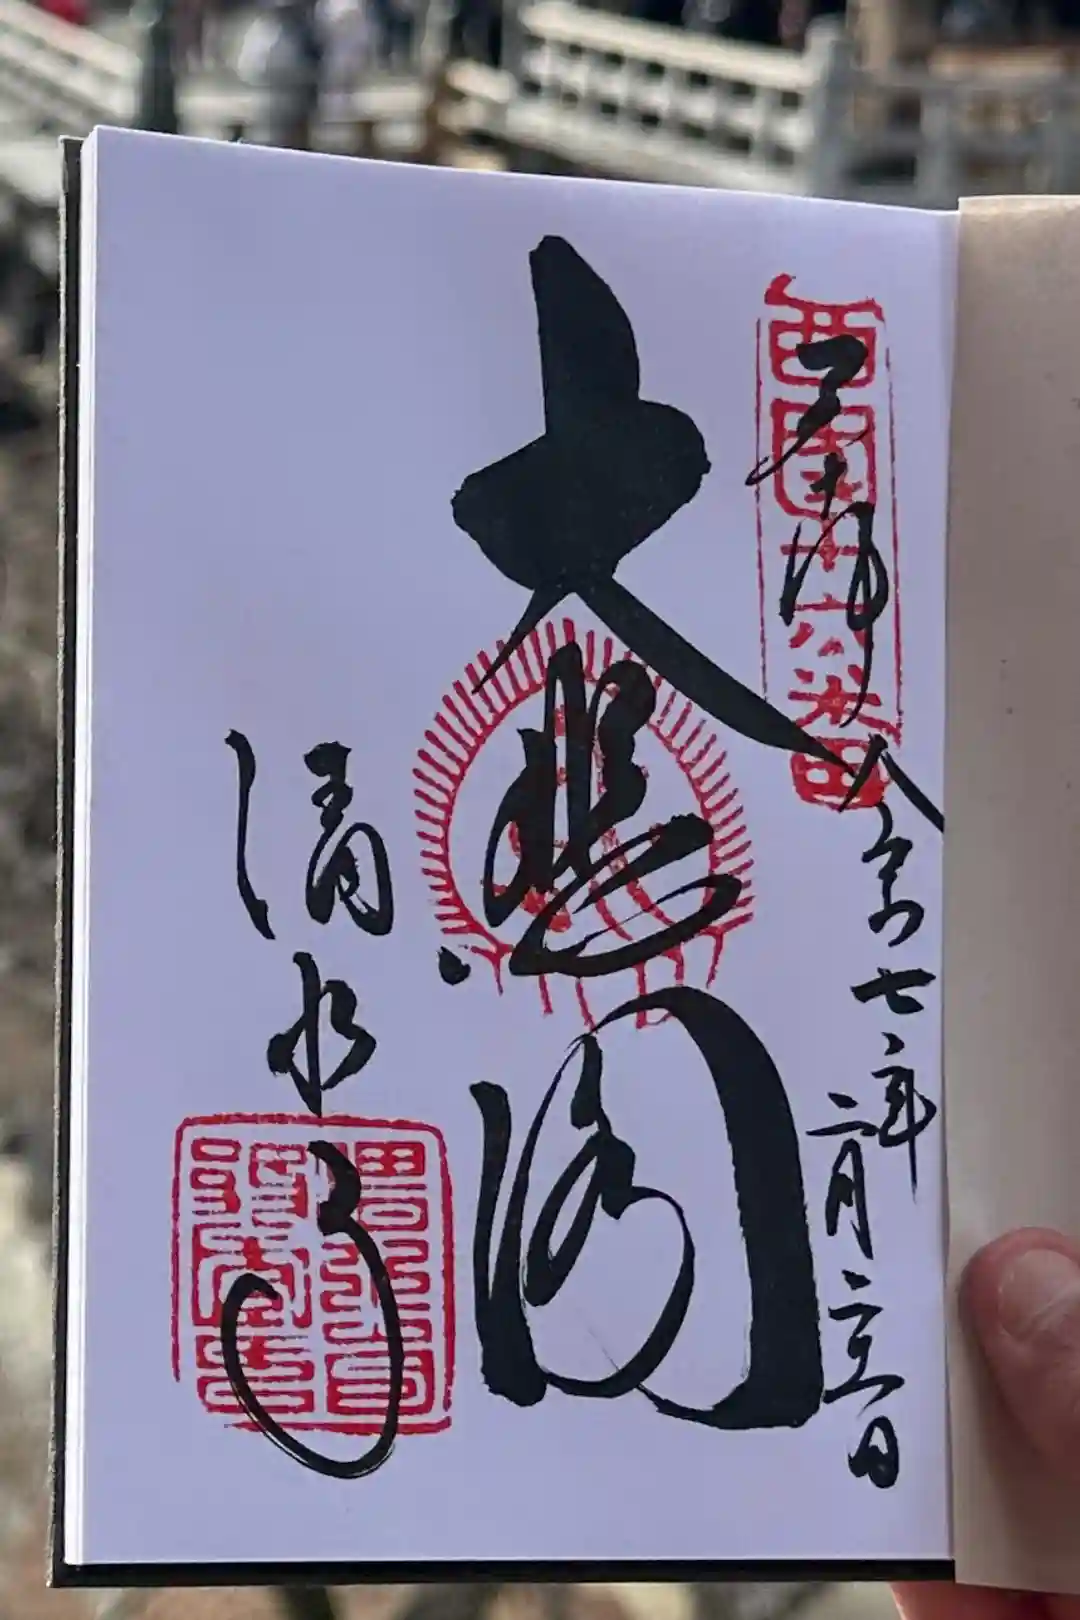 西國十六番
奉拝
令和七年二月二三日
大悲閣
清水寺